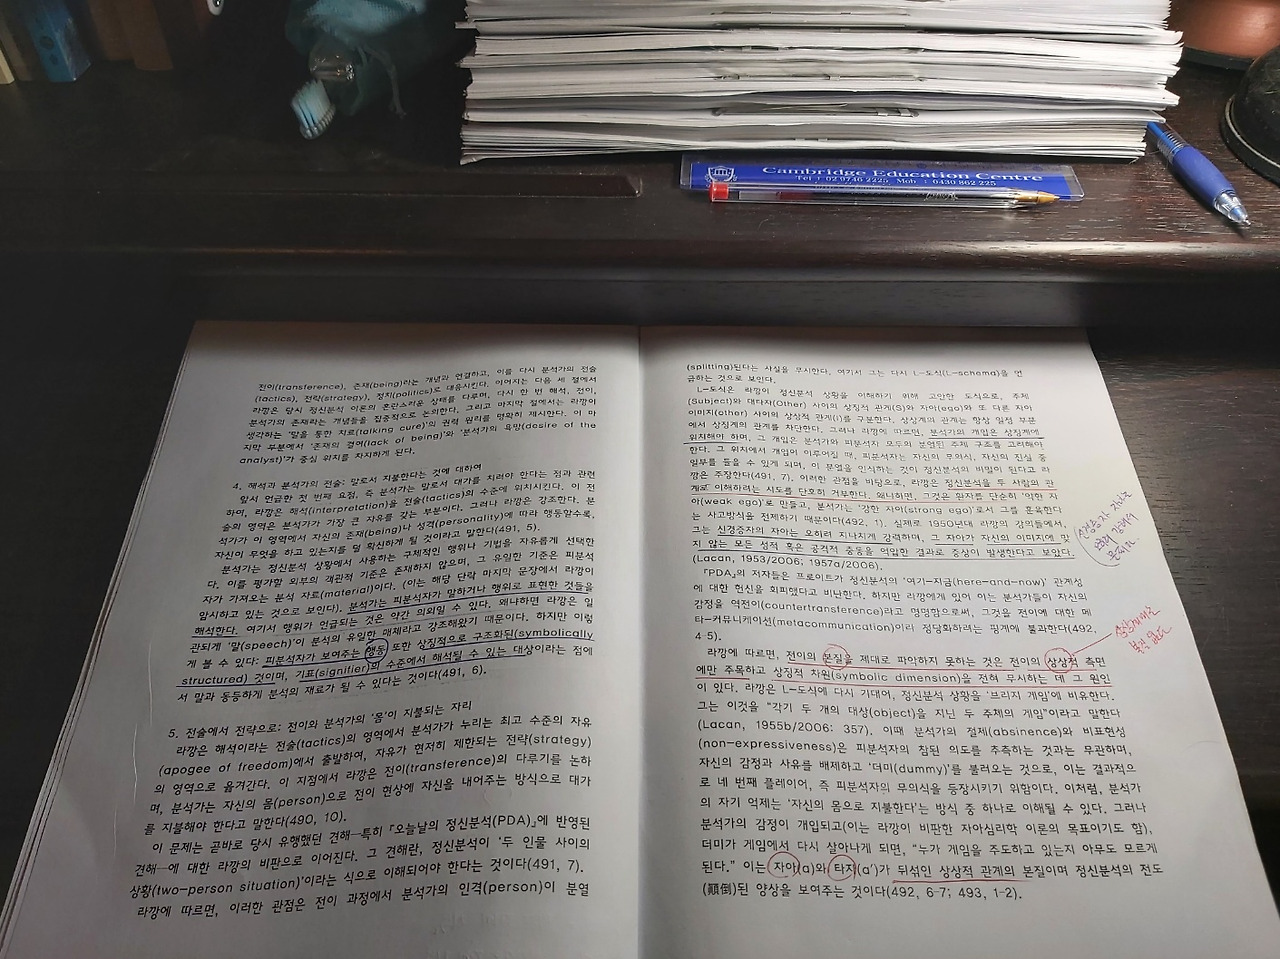 Cambridge Education Centre
Tel : 02 9746 2225 Mob : 0430 862 225
전이(transference), 존재(being)라는 개념과 연결하고, 이를 다시 분석가의 전술
(tactics), 전략(strategy), 정치(politics)로 대응시킨다. 이어지는 다음 세 절에서
라깡은 당시 정신분석 이론의 혼란스러운 상태를 다루며, 다시 한 번 해석, 전이,
분석가의 존재라는 개념들을 집중적으로 논의한다. 그리고 마지막 절에서는 라깡이
생각하는 '말을 통한 치료(talking cure)'의 권력 원리를 명확히 제시한다. 이 마
지막 부분에서 '존재의 결여(lack of being)'와 '분석가의 욕망(desire of the
analyst)'가 중심 위치를 차지하게 된다.
4. 해석과 분석가의 전술: 말로서 지불한다는 것에 대하여
앞서 언급한 첫 번째 요점, 즉 분석가는 말로서 대가를 치러야 한다는 점과 관련
하여, 라깡은 해석(interpretation)을 전술(tactics)의 수준에 위치시킨다. 이 전
술의 영역은 분석가가 가장 큰 자유를 갖는 부분이다. 그러나 라깡은 강조한다. 분
석가가 이 영역에서 자신의 존재(being)나 성격(personality)에 따라 행동할수록,
자신이 무엇을 하고 있는지를 덜 확신하게 될 것이라고 말한다(491, 5).
분석가는 정신분석 상황에서 사용하는 구체적인 행위나 기법을 자유롭게 선택한
다. 이를 평가할 외부의 객관적 기준은 존재하지 않으며, 그 유일한 기준은 피분석
자가 가져오는 분석 자료(material)이다. (이는 해당 단락 마지막 문장에서 라깡이
암시하고 있는 것으로 보인다). 분석가는 피분석자가 말하거나 행위로 표현한 것들을
해석한다. 여기서 행위가 언급되는 것은 약간 의외일 수 있다. 왜냐하면 라깡은 일
관되게 '말(speech)'이 분석의 유일한 매체라고 강조해왔기 때문이다. 하지만 이렇
게 볼 수 있다: 피분석자가 보여주는 행동 또한 상징적으로 구조화된(symbolically
structured) 것이며, 기표(signifier)의 수준에서 해석될 수 있는 대상이라는 점에
서 말과 동등하게 분석의 재료가 될 수 있다는 것이다(491, 6).
5. 전술에서 전략으로: 전이와 분석가의 '몸'이 지불되는 자리
라깡은 해석이라는 전술(tactics)의 영역에서 분석가가 누리는 최고 수준의 자유
(apogee of freedom)에서 출발하여, 자유가 현저히 제한되는 전략(strategy)
의 영역으로 옮겨간다. 이 지점에서 라깡은 전이(transference)의 다루기를 논하
며, 분석가는 자신의 몸(person)으로 전이 현상에 자신을 내어주는 방식으로 대가
를 지불해야 한다고 말한다(490, 10).
이 문제는 곧바로 당시 유행했던 견해—특히 『오늘날의 정신분석(PDA)』에 반영된
견해—에 대한 라깡의 비판으로 이어진다. 그 견해란, 정신분석이 '두 인물 사이의
상황(two-person situation)'이라는 식으로 이해되어야 한다는 것이다(491, 7).
라깡에 따르면, 이러한 관점은 전이 과정에서 분석가의 인격(person)이 분열
(splitting)된다는 사실을 무시한다. 여기서 그는 다시 L-도식(L-schema)을 언
급하는 것으로 보인다.
L-도식은 라깡이 정신분석 상황을 이해하기 위해 고안한 도식으로, 주체
(Subject)와 대타자(Other) 사이의 상징적 관계(S)와 자아(ego)와 또 다른 자아
이미지(other) 사이의 상상적 관계(i)를 구분한다. 상상계의 관계는 항상 일정 부분
에서 상징계의 관계를 차단한다. 그러나 라깡에 따르면, 분석가의 개입은 상징계에
위치해야 하며, 그 개입은 분석가와 피분석자 모두의 분열된 주체 구조를 고려해야
한다. 그 위치에서 개입이 이루어질 때, 피분석자는 자신의 무의식, 자신의 진실 중
일부를 들을 수 있게 되며, 이 분열을 인식하는 것이 정신분석의 비밀이 된다고 라
깡은 주장한다(491, 7). 이러한 관점을 바탕으로, 라깡은 정신분석을 두 사람의 관
계로 이해하려는 시도를 단호히 거부한다. 왜냐하면, 그것은 환자를 단순히 '약한 자
아(weak ego)'로 만들고, 분석가는 '강한 자아(strong ego)'로서 그를 훈육한다
는 사고방식을 전제하기 때문이다(492, 1). 실제로 1950년대 라깡의 강의들에서,
그는 신경증자의 자아는 오히려 지나치게 강력하며, 그 자아가 자신의 이미지에 맞
지 않는 모든 성적 혹은 공격적 충동을 억압한 결과로 증상이 발생한다고 보았다.
(Lacan, 1953/2006; 1957a/2006).
『PDA』의 저자들은 프로이트가 정신분석의 '여기-지금(here-and-now)' 관계성
에 대한 헌신을 회피했다고 비난한다. 하지만 라깡에게 있어 이는 분석가들이 자신의
감정을 역전이(countertransference)라고 명명함으로써, 그것을 전이에 대한 메
타-커뮤니케이션(metacommunication)이라 정당화하려는 핑계에 불과하다(492,
4-5).
라깡에 따르면, 전이의 본질을 제대로 파악하지 못하는 것은 전이의 상상적 측면
에만 주목하고 상징적 차원(symbolic dimension)을 전혀 무시하는 데 그 원인
이 있다. 라깡은 L-도식에 다시 기대어, 정신분석 상황을 '브리지 게임'에 비유한다.
그는 이것을 "각기 두 개의 대상(object)을 지닌 두 주체의 게임"이라고 말한다
(Lacan, 1955b/2006: 357). 이때 분석가의 절제(absinence)와 비표현성
(non-expressiveness)은 피분석자의 참된 의도를 추측하는 것과는 무관하며,
자신의 감정과 사유를 배제하고 '더미(dummy)'를 불러오는 것으로, 이는 결과적으
로 네 번째 플레이어, 즉 피분석자의 무의식을 등장시키기 위함이다. 이처럼, 분석가
의 자기 억제는 '자신의 몸으로 지불한다'는 방식 중 하나로 이해될 수 있다. 그러나
분석가의 감정이 개입되고(이는 라깡이 비판한 자아심리학 이론의 목표이기도 함),
더미가 게임에서 다시 살아나게 되면, "누가 게임을 주도하고 있는지 아무도 모르게
된다." 이는 자아(a)와 타자(a')가 뒤섞인 상상적 관계의 본질이며 정신분석의 전도
(顚倒)된 양상을 보여주는 것이다(492, 6-7; 493, 1-2).